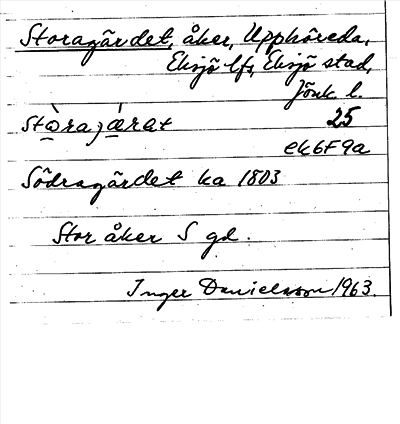 Storagärdet, åker, Upphöreda,
Eksjö lfs, Eksjö stad,
Jönk. l.
25
ek6F9a
Södragärdet ka 1803
Stor åker S gd.
Inger Danielsson 1963.